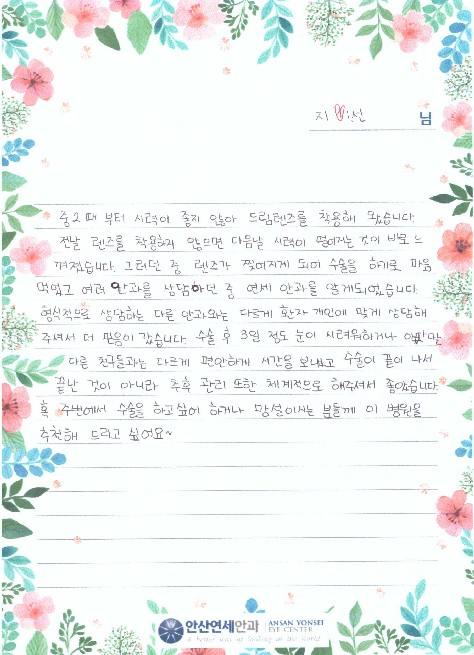 지 선 님
중2때 부터 시력이 좋지 않아 드림렌즈를 착용해 왔습니다.
전날 렌즈를 착용하지 않으면 다음날 시력이 떨어지는 것이 바로 느
껴졌습니다. 그러던 중 렌즈가 찢어지게 되어 수술을 하기로 마음
먹었고 여러 안과를 상담하던 중 연세 안과를 알게되었습니다.
형식적으로 상담하는 다른 안과와는 다르게 환자 개인에 맞게 상담해
주셔서 더 믿음이 갔습니다. 수술 후 3일 정도 눈이 시려워하거나
다른 친구들과는 다르게 편안하게 시간을 보냈고 수술이 끝이 나서
끝난 것이 아니라 추후 관리 또한 체계적으로 해주셔서 좋았습니다.
혹 주변에서 수술을 하고싶어 하거나 망설이시는 분들께 이 병원을
추천해 드리고 싶어요~
안산연세안과 ANSAN YONSEI EYE CENTER
a better way of looking at the world